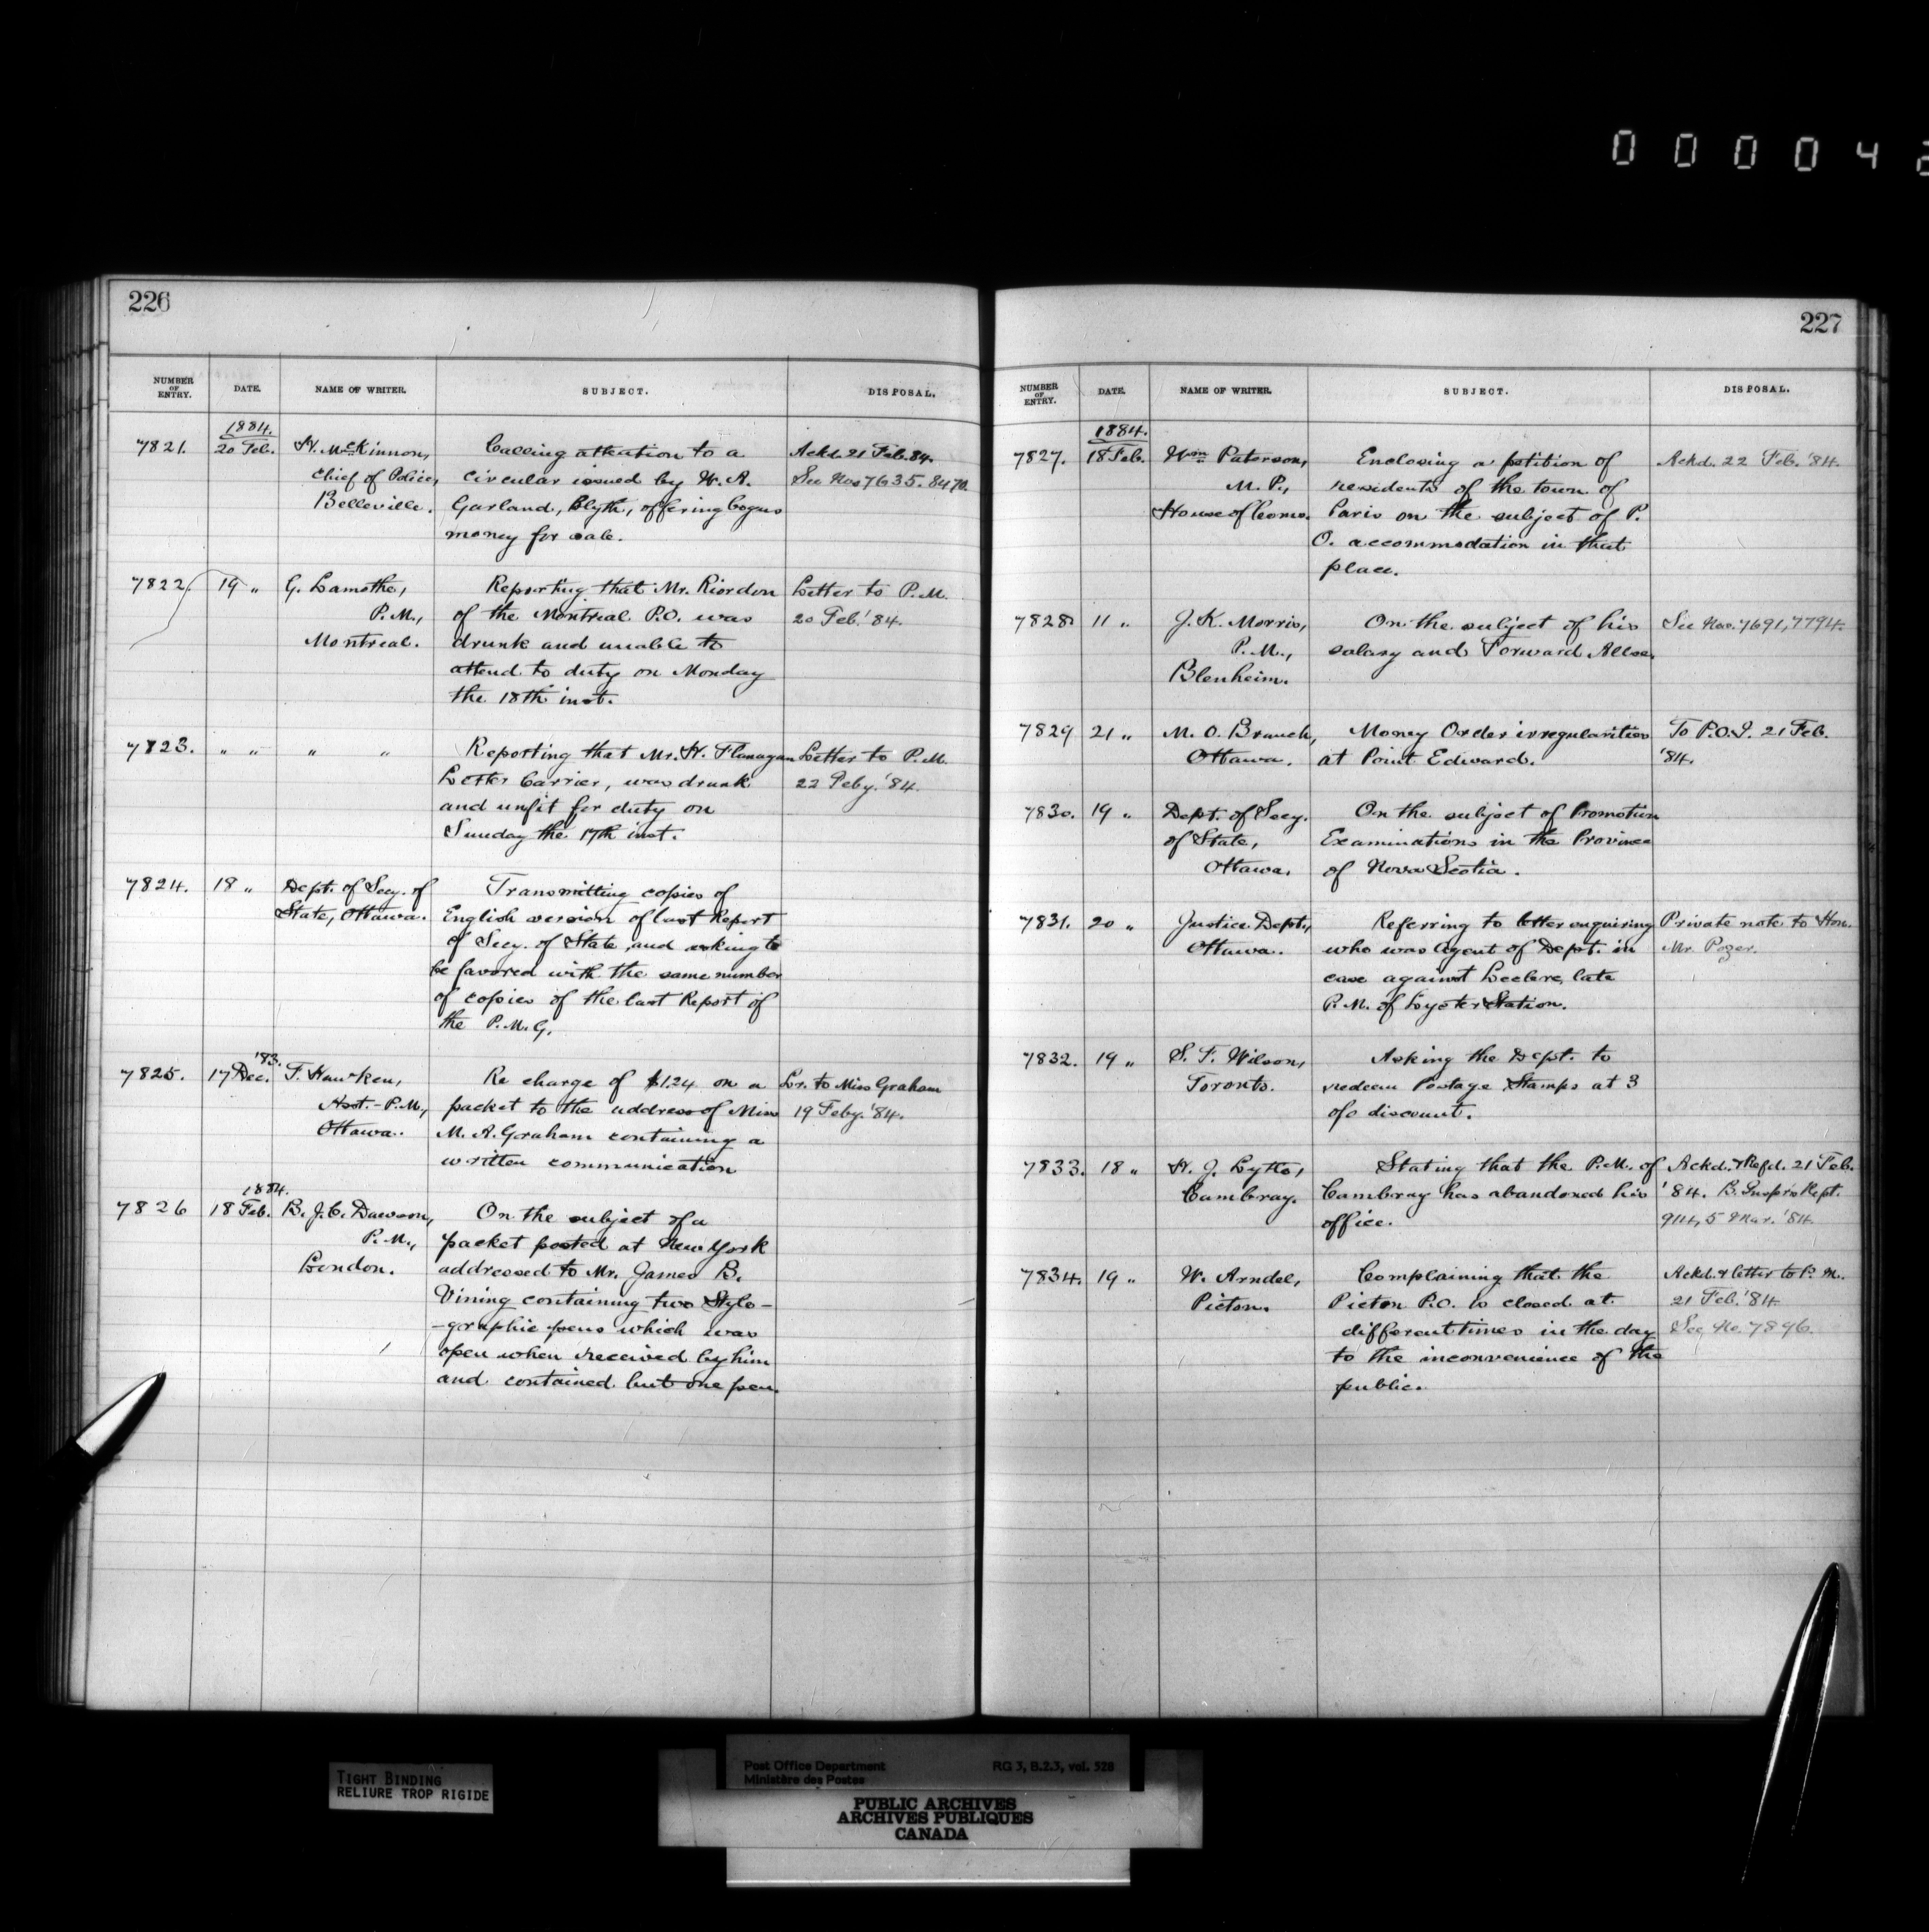 0 0 0 0 4 2
226
NUMBER OF ENTRY. DATE. NAME OF WRITER. SUBJECT. DISPOSAL.
1884.
7821. 20 Feb. H. McKinnon, Calling attention to a Ackd. 21 Feb. 84.
Chief of Police, circular issued by W. A. See Nos 7635. 8470.
Belleville. Garland, Blyth, offering bogus
money for sale.
7822. 19 „ G. Lamothe, Reporting that Mr. Riordon Letter to P.M.
P.M., of the Montreal P.O. was 20 Feb. '84.
Montreal. drunk and unable to
attend to duty on Monday
the 18th inst.
7823. „ „ „ „ Reporting that Mr. H. Flanagan Letter to P.M.
Letter Carrier, was drunk 22 Feby. '84.
and unfit for duty on
Sunday the 17th inst.
7824. 18 „ Dept. of Secy. of Transmitting copies of
State, Ottawa. English version of last Report
of Secy. of State and asking to
be favored with the same number
of copies of the last Report of
the P.M.G.
'83.
7825. 17 Dec. F. Hawken, Re charge of $1.24 on a Lr. to Miss Graham
Asst.-P.M., packet to the address of Miss 19 Feby. '84.
Ottawa. M. A. Graham containing a
written communication
1884.
7826 18 Feb. B. J. C. Dawson, On the subject of a
P.M., packet posted at New York
London. addressed to Mr. James B.
Vining containing two Stylo-
-graphic pens which was
open when received by him
and contained but one pen.
227
NUMBER OF ENTRY. DATE. NAME OF WRITER. SUBJECT. DISPOSAL.
1884.
7827. 18 Feb. Wm. Paterson, Enclosing a petition of Ackd. 22 Feb. '84.
M.P., residents of the town of
House of Coms. Paris on the subject of P.
O. accommodation in that
place.
7828 11 „ J. K. Morris, On the subject of his See Nos. 7691, 7794.
P.M., salary and Forward Allce.
Blenheim.
7829 21 „ M. O. Branch, Money Order irregularities To P.O.I. 21 Feb.
Ottawa. at Point Edward. '84.
7830. 19 „ Dept. of Secy. On the subject of Promotion
of State, Examinations in the Province
Ottawa. of Nova Scotia.
7831. 20 „ Justice Dept., Referring to letter enquiring Private note to Hon.
Ottawa. who was Agent of Dept. in Mr. Pozer.
case against Leclerc, late
P.M. of Lyster Station.
7832. 19 „ S. F. Wilson, Asking the Dept. to
Toronto. redeem Postage Stamps at 3
o/o discount.
7833. 18 „ H. J. Lytle, Stating that the P.M. of Ackd. & Refd. 21 Feb.
Cambray. Cambray has abandoned his '84. B. Inspr's Rept.
office. 914, 5 Mar. '84
7834. 19 „ W. Arndel, Complaining that the Ackd. & letter to P.M.
Picton. Picton P.O. is closed at 21 Feb. '84
different times in the day See No. 7896.
to the inconvenience of the
public.
TIGHT BINDING
RELIURE TROP RIGIDE
Post Office Department RG 3, B.2.3, vol. 528
Ministère des Postes
PUBLIC ARCHIVES
ARCHIVES PUBLIQUES
CANADA